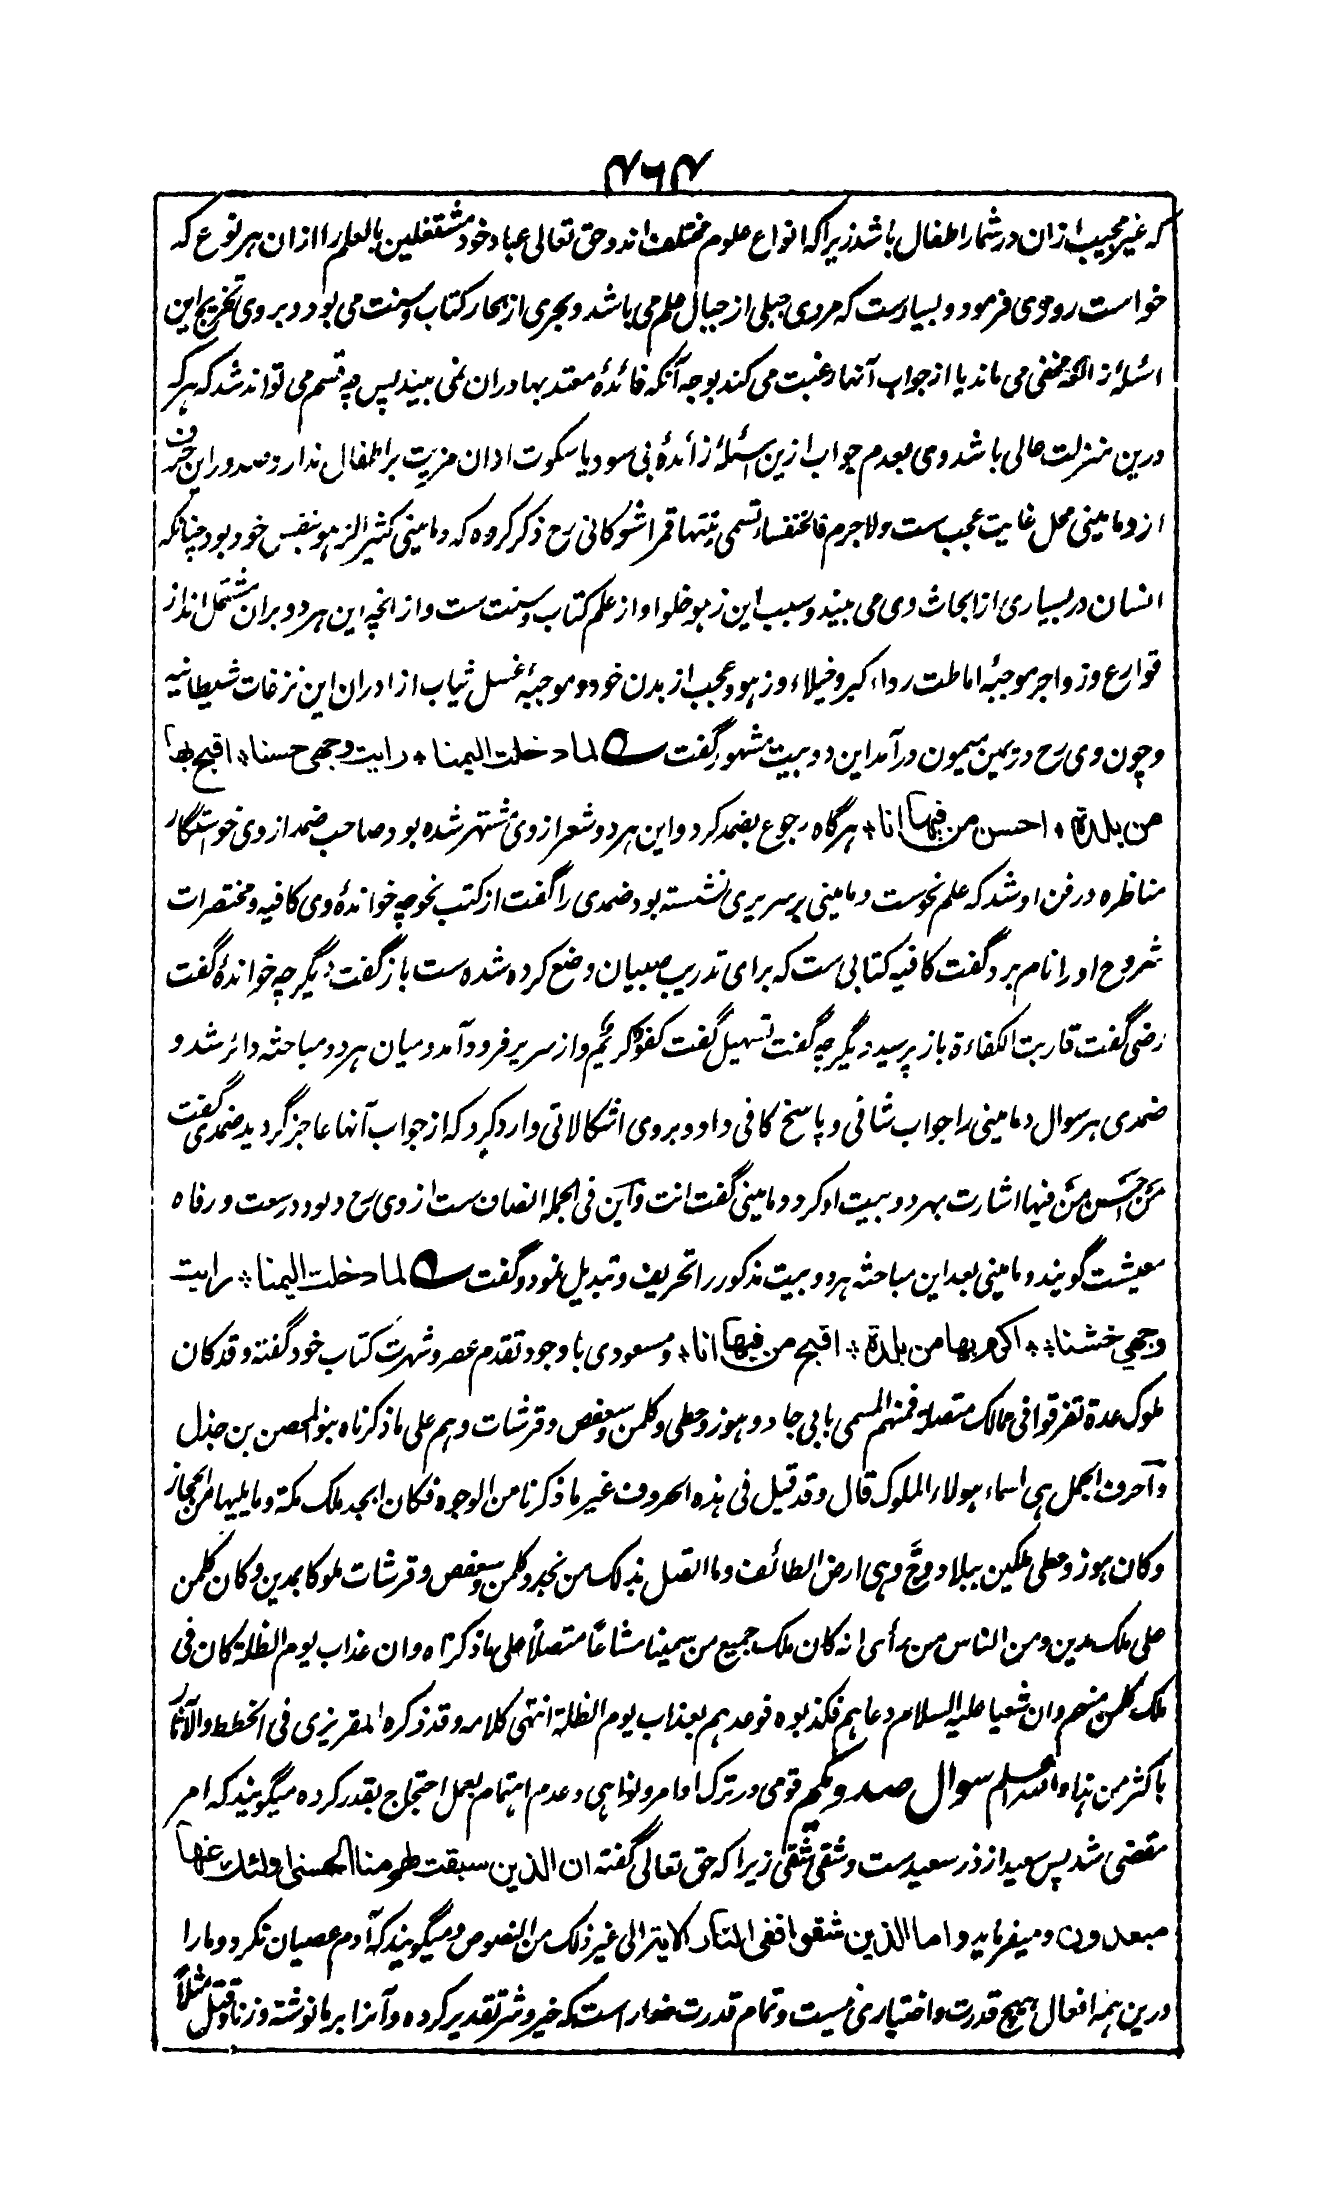 ۴۶۴
که غیر مجیب ازان در شمار اطفال باشد زیرا که انواع علوم مختلف اند و حق تعالی عباد خود مشتغلین بالعلم را ازان هر نوع که
خواست روزی فرمود و بسیارست که مردی جبلی از جبال علم می باشد و بحری از بحار کتاب و سنت می بود و بروی تخریج این
اسئلهٔ مخفی می ماند یا از جواب آنها رغبت می کند بوجه آنکه فائدهٔ معتد بها دران نمی بیند پس چه قسم می تواند شد که هر که
درین منزلت عالی باشد وی بعدم جواب ازین اسئلهٔ زائدهٔ بی سود یا سکوت ازان مزیت بر اطفال ندارد و صدور این حرف
از دمامینی محل غایت عجب ست ولاجرم فالخنفساء تسمی بنتها قمرا شوکانی رح ذکر کرده که دمامینی کثیر الزهو بنفس خود بود چنانکه
انسان در بسیاری از ابحاث وی می بیند و سبب این زهو خلو او از علم کتاب و سنت ست و از انچه این هر دو بران مشتمل اند از
قوارع و زواجر موجبهٔ اماطت رداء کبر و خیلاء و زهو و عجب از بدن خود و موجبهٔ غسل ثیاب از ادران این نزغات شیطانیه
و چون وی رح در یمن میمون درآمد این دو بیت مشهور گفت لما دخلت الیمنا * رایت وجهی حسنا * اقبح بها
من بلدة * احسن من فیها انا * هر گاه رجوع بضمد کرد و این هر دو شعر از وی مشتهر شده بود صاحب ضمد از وی خواستگار
مناظره در فن او شد که علم نحوست دمامینی بر سریری نشسته بود ضمدی را گفت از کتب نحو چه خواندهٔ وی کافیه و مختصرات
شروح او را نام برد گفت کافیه کتابی ست که برای تدریب صبیان وضع کرده شده ست باز گفت دیگر چه خواندهٔ گفت
رضی گفت قاربت الکفاءة باز پرسید دیگر چه گفت تسهیل گفت کفوٌ کریم و از سریر فرود آمد و میان هر دو مباحثه دائر شد و
ضمدی هر سوال دمامینی را جواب شافی و پاسخ کافی داد و بروی اشکالاتی وارد کرد که از جواب آنها عاجز گردید ضمدی گفت
من احسن من فیها اشارت بهر دو بیت او کرد دمامینی گفت انت و این فی الجمله انصاف ست از وی رح و لود در سعت و رفاه
معیشت گویند دمامینی بعد این مباحثه هر دو بیت مذکور را تحریف و تبدیل نمود و گفت لما دخلت الیمنا * رایت
وجهی خشنا ** اکرم بها من بلدة * اقبح من فیها انا * و مسعودی با وجود تقدم عصر و شهرت کتاب خود گفته وقد کان
ملوک عدة تفرقوا فی ممالک متصلة فمنهم المسمی بابی جاد و هوز وحطی وکلمن وسعفص وقرشات وهم علی ما ذکرناه بنو المحصن بن جندل
واحرف الجمل هی اسماء هولاء الملوک قال وقد قیل فی هذه الحروف غیر ما ذکرنا من الوجوه فکان ابجد ملک مکة وما یلیها من الحجاز
وکان هوز وحطی ملکین ببلاد وج وهی ارض الطائف وما اتصل بذلک من نجد وکلمن وسعفص وقرشات ملوکا بمدین وکان کلمن
علی ملک مدین ومن الناس من رأی انه کان ملک جمیع من سمینا مشاعا متصلاً علی ما ذکرناه وان عذاب یوم الظلة کان فی
ملک کلمن منهم وان شعیبا علیه السلام دعاهم فکذبوه فوعدهم بعذاب یوم الظلة انتهی کلامه وقد ذکره المقریزی فی الخطط والآثار
باکثر من هذا والله اعلم سوال صد و یکم قومی در ترک اوامر و نواهی و عدم اهتمام بعمل احتجاج بقدر کرده میگویند که امر
مقضی شد پس سعید از ذر سعیدست و شقی شقی زیرا که حق تعالی گفته ان الذین سبقت لهم منا الحسنی اولئک عنها
مبعدون و میفرماید واما الذین شقوا ففی النار الایة الی غیر ذلک من النصوص و میگویند که آدم عصیان نکرد و ما را
درین همه افعال هیچ قدرت و اختیاری نیست و تمام قدرت خدا راست که خیر و شر تقدیر کرده و آنرا بر ما نوشته و زنا و قتل مثلاً